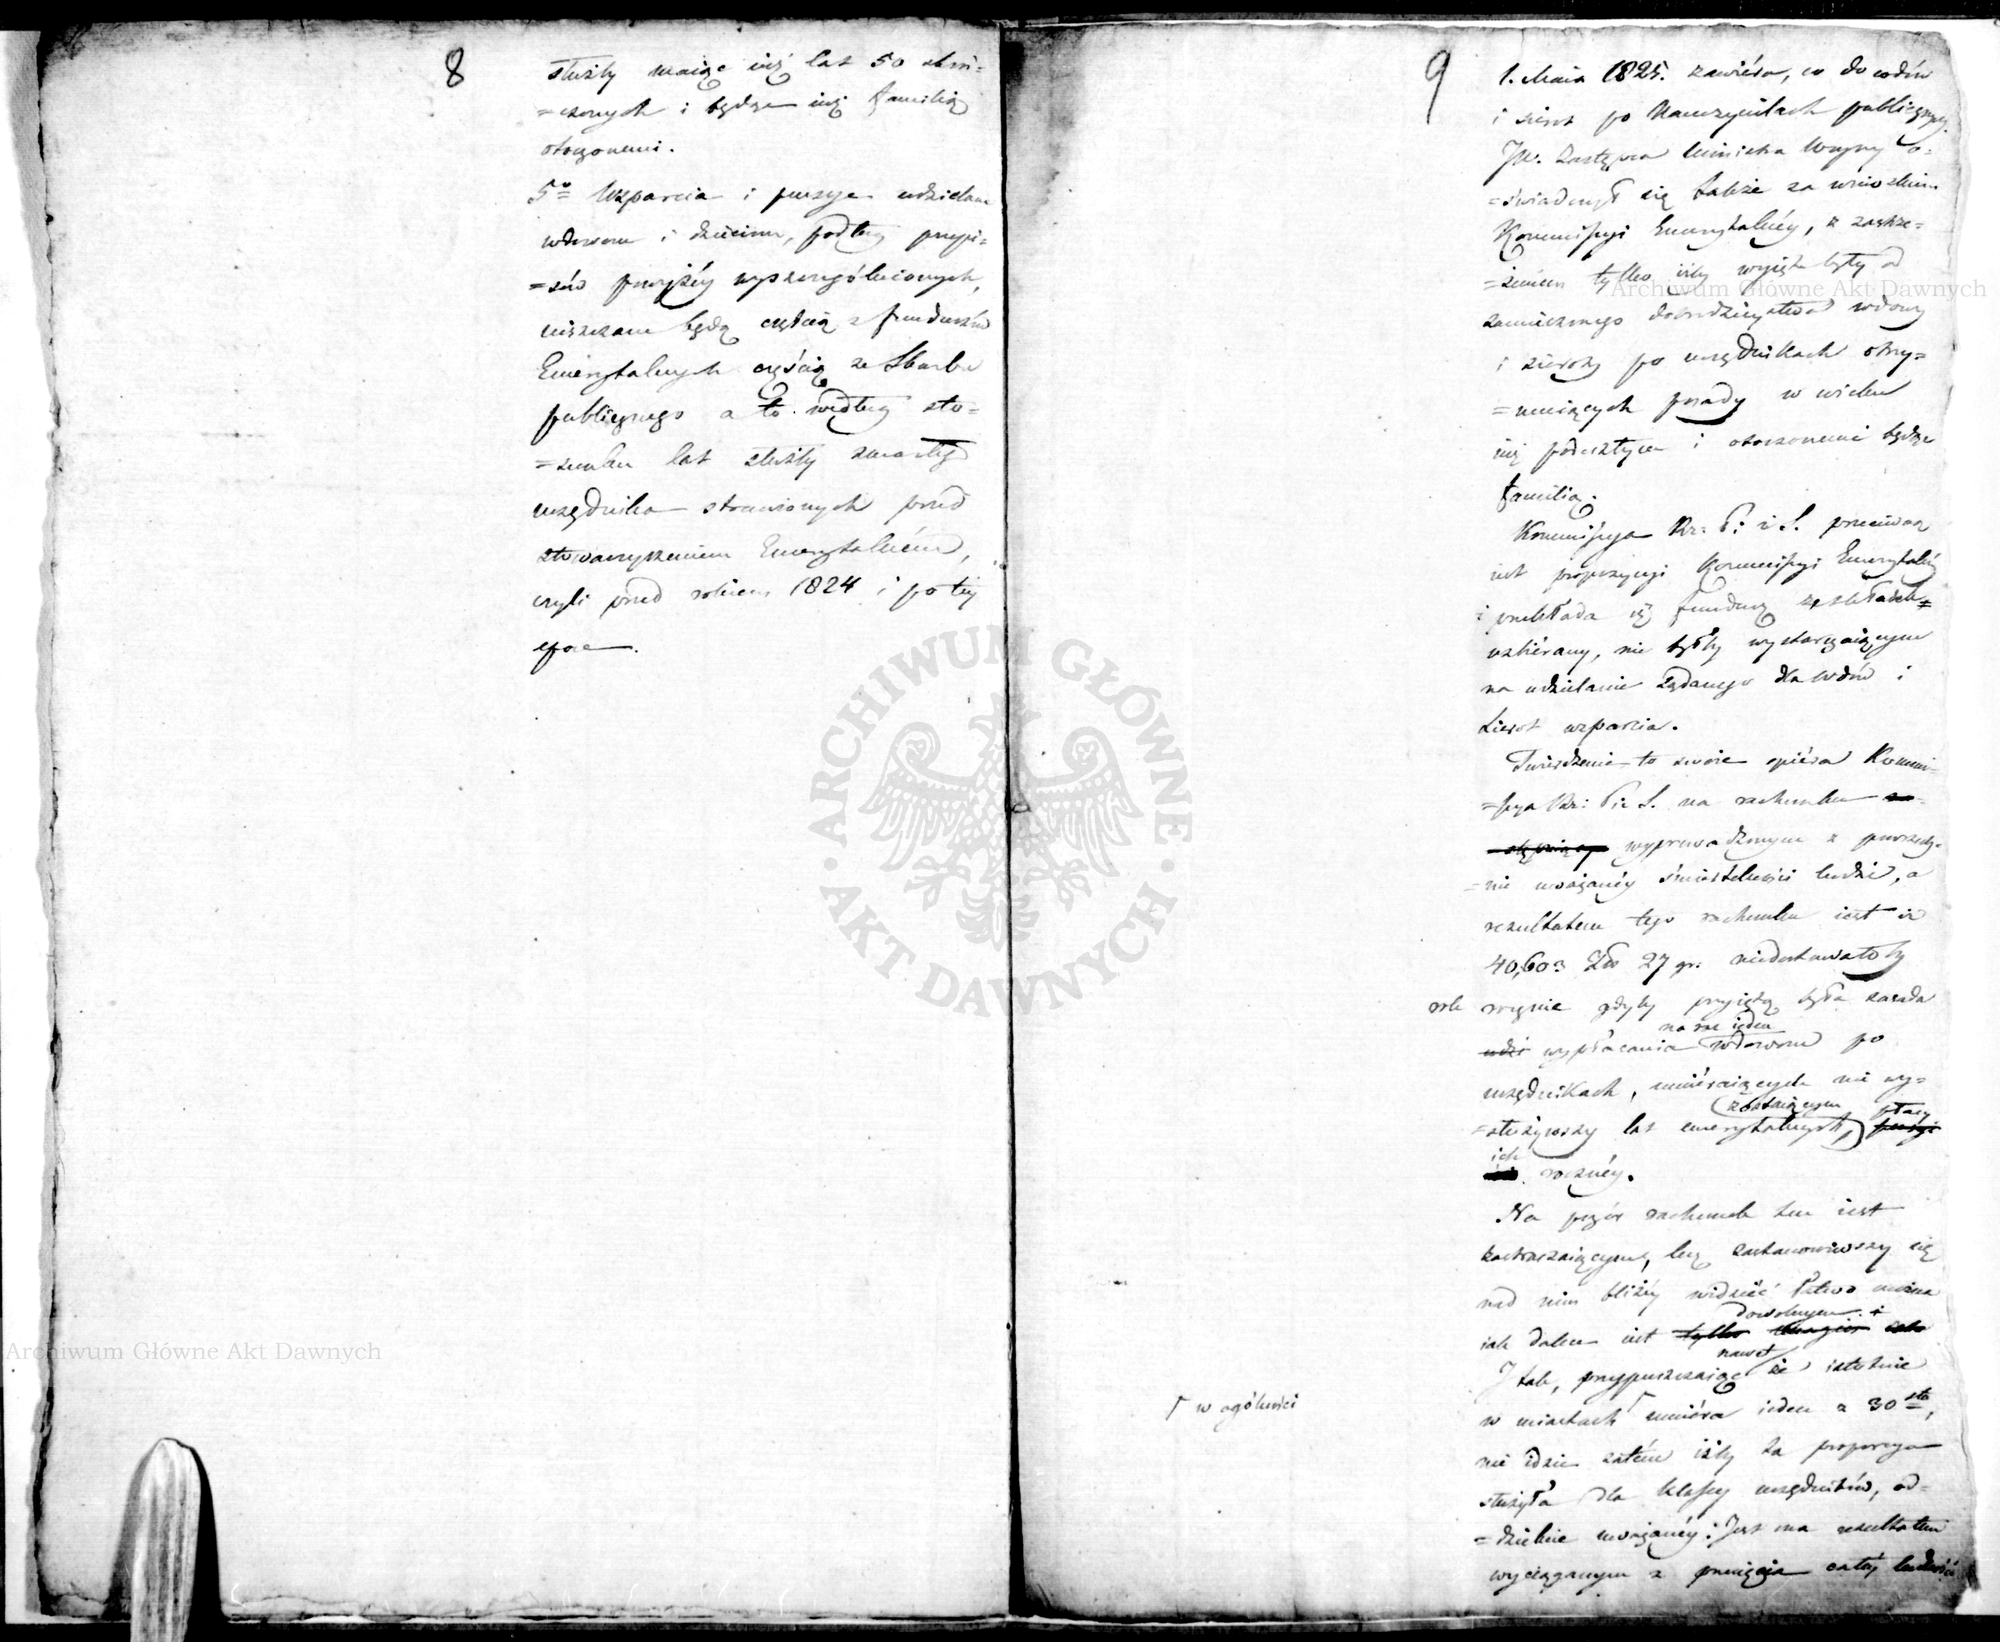 8
służby maiąc iuż lat 50 skoń=
=czonych i będąc iuż familią
otoczonemi.
5º Wsparcia i pensye udzielane
wdowom i dzieciom, podług przepi=
=sów powyżéy wyszczególnionych,
uiszczane będą częścią z funduszów
Emerytalnych częścią ze Skarbu
publicznego a to według sto=
=sunku lat służby zmarłego
urzędnika strawionych przed
stowarzyszeniem Emerytalném,
czyli przed rokiem 1824 i po téy
epoce.
9
1. Maia 1825. zawiéra, co do wdów
i sierot po Nauczycielach publicznych.
JW. Zastępca Ministra Woyny o=
=świadczył się także za wnioskiem
Kommissyi Emerytalnéy, z zastrze=
=żeniem tylko iżby wyięte były od
zamierzonego dobrodzieystwa wdowy
i sieroty po urzędnikach otrzy=
=muiących posady w wieku
iuż podeszłym i otoczonemi będąc
familią.
Kommissya Rz: P: i S. przeciwną
iest propozycyi Kommissyi Emerytalnéy
i przekłada iż fundusz ze składek
uzbierany, nie byłby wystarczaiącym
na udzielanie żądanego dla wdów i
sierot wsparcia.
Twierdzenie to swoie opiéra Kommi=
=ssya Rz: P i S. na rachunku
wyprowadzonym z powszech=
=nie uważanéy śmiertelności ludzi, a
rezultatem tego rachunku iest iż
40,603 Złp 27 gr. niedostawałoby
rok rocznie gdyby przyiętą była zasada
na raz ieden
wypłacania wdowom po
urzędnikach, umiéraiących nie wy=
zostaiącym płacy
=służywszy lat emerytalnych,
ich
rocznéy.
Na pozór rachunek ten iest
zastraszaiącym, lecz zastanowiwszy się
nad nim bliżéy widziéć łatwo można
dowolnym i
iak dalece iest tylko
nawet
I tak, przypuszczaiąc że istotnie
w miastach umiéra ieden z 30stu,
Γ w ogólności
nie idzie zatém iżby ta proporcya
służyła dla klassy urzędników, od=
=dzielnie uważanéy: Jest ona rezultatem
wyciąganym z przecięcia całéy ludności
Archiwum Główne Akt Dawnych
Archiwum Główne Akt Dawnych
ARCHIWUM GŁÓWNE
AKT DAWNYCH